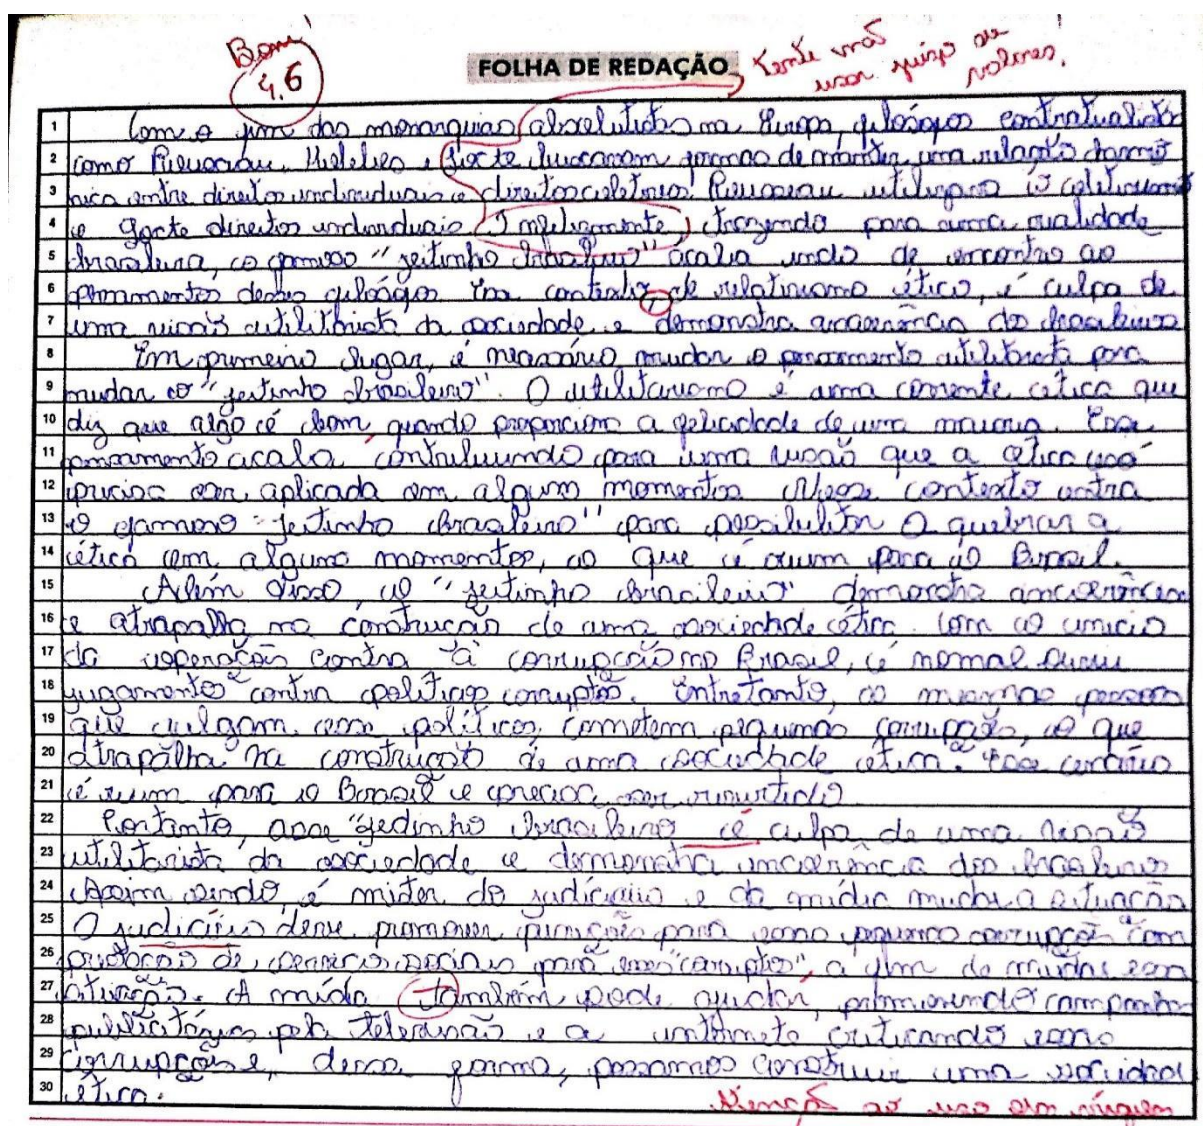 Bom!
4,6
FOLHA DE REDAÇÃO
Tente não usar juízo de valores!
1 Com o fim das monarquias absolutistas na Europa, filósofos contratualistas
2 como Rousseau, Hobbes e Locke buscaram formas de manter uma relação harmô
3 nica entre direitos individuais e direitos coletivos. Rousseau utilizava o coletivismo
4 e Locke direitos individuais. Infelizmente, trazendo para uma realidade
5 brasileira, o famoso "jeitinho brasileiro" acaba indo de encontro ao
6 pensamentos desses filósofos. Esse contexto de relativismo ético, é culpa de
7 uma visão utilitarista da sociedade e demonstra incoerência do brasileiro
8 Em primeiro lugar, é necessário mudar o pensamento utilitarista para
9 mudar o "jeitinho brasileiro". O utilitarismo é uma corrente ética que
10 diz que algo é bom quando proporciona a felicidade de uma maioria. Esse
11 pensamento acaba contribuindo para uma visão que a ética só
12 precisa ser aplicada em alguns momentos. Nesse contexto entra
13 o famoso "jeitinho brasileiro" para possibilitar o quebrar a
14 ética em alguns momentos, o que é ruim para o Brasil.
15 Além disso, o "jeitinho brasileiro" demonstra incoerência
16 e atrapalha na construção de uma sociedade ética. Com o inicio
17 da operação contra à corrupção no Brasil, é normal ouvir
18 jugamentos contra politicos corruptos. Entretanto, as mesmas pessoas
19 que julgam esses políticos, cometem pequenas corrupções, o que
20 atrapalha na construção de uma sociedade ética. Esse cenário
21 é ruim para o Brasil e precisa ser revertido
22 Portanto, esse "jedinho brasileiro" é culpa de uma visão
23 utilitarista da sociedade e demonstra incoerência dos brasileiros
24 Assim sendo, é mister do judiciário e da mídia mudar a situação
25 O judiciário deve promover punições para essas pequenas corrupções com
26 prestação de serviços sociais para esses "corruptos", a fim de mudar essa
27 situação. A mídia também pode ajudar, promovendo campanhas
28 publicitárias pela televisão e a internet criticando essas
29 corrupções e, dessa forma, possamos construir uma sociedade
30 ética.
Atenção ao uso em vírgulas